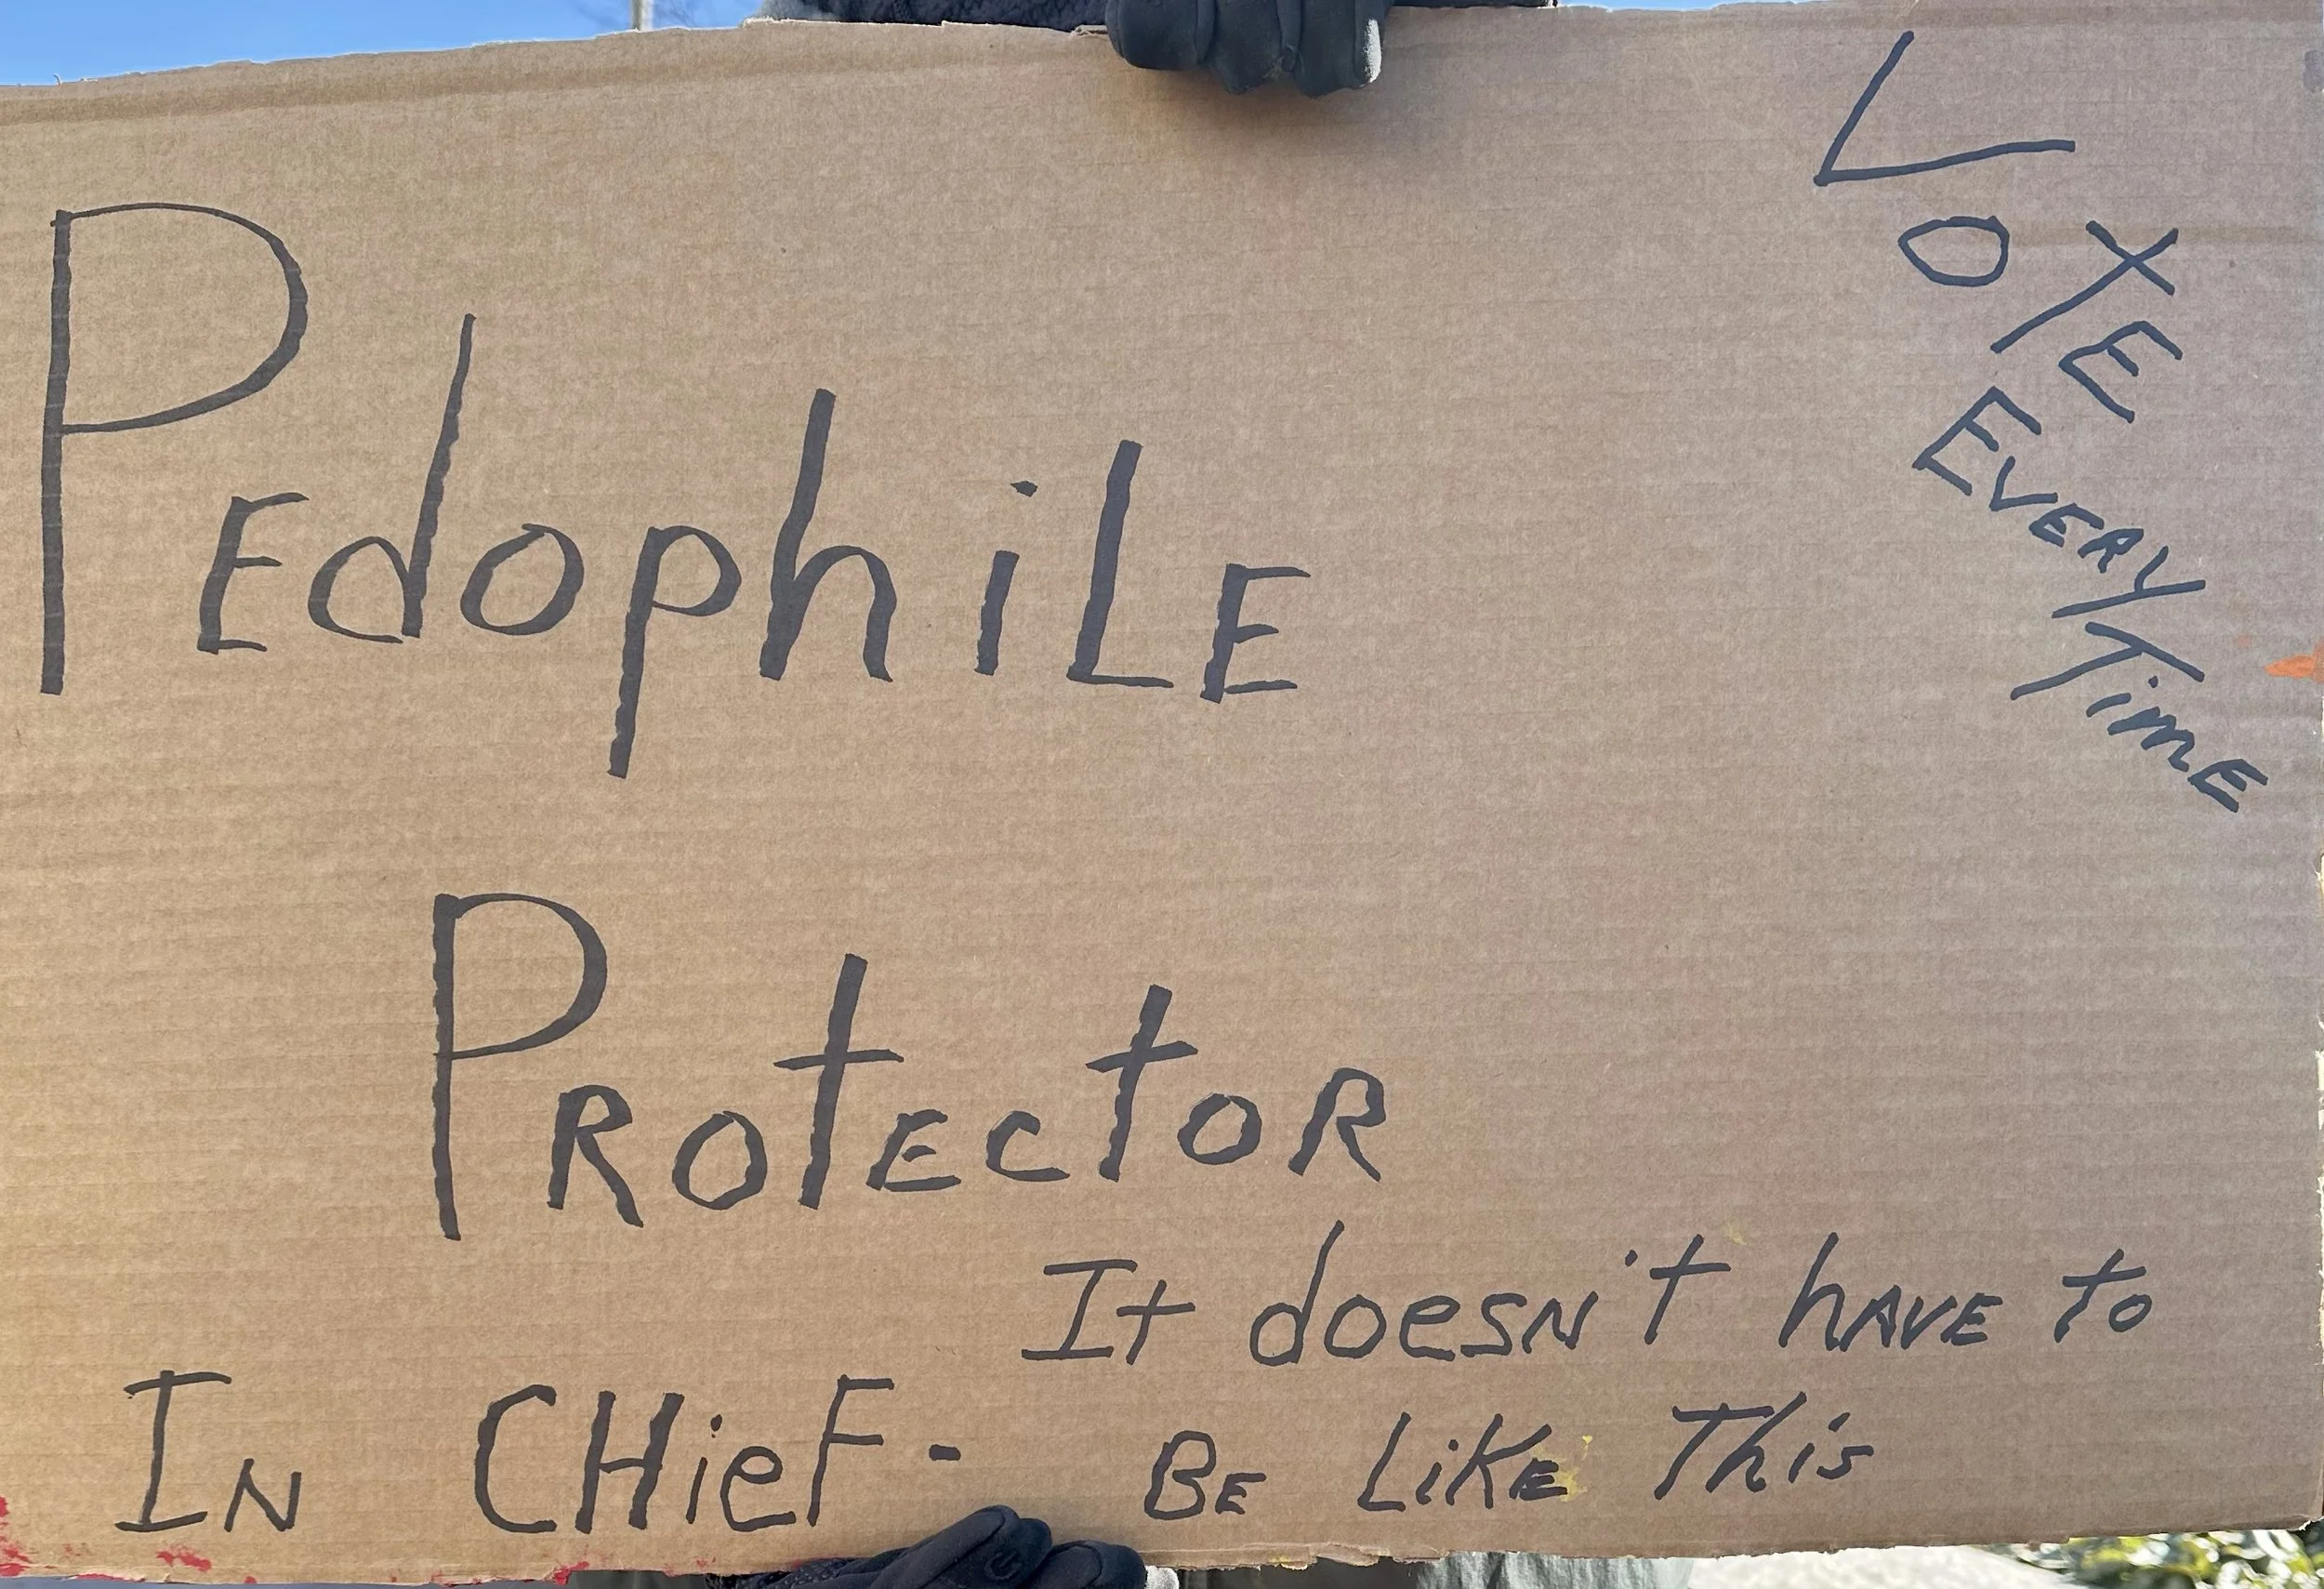 PEdophiLE
PROtEctOR
IN CHieF-
It doesN't hAVE to
BE LiKE This
VOTE
EVERY
TimE